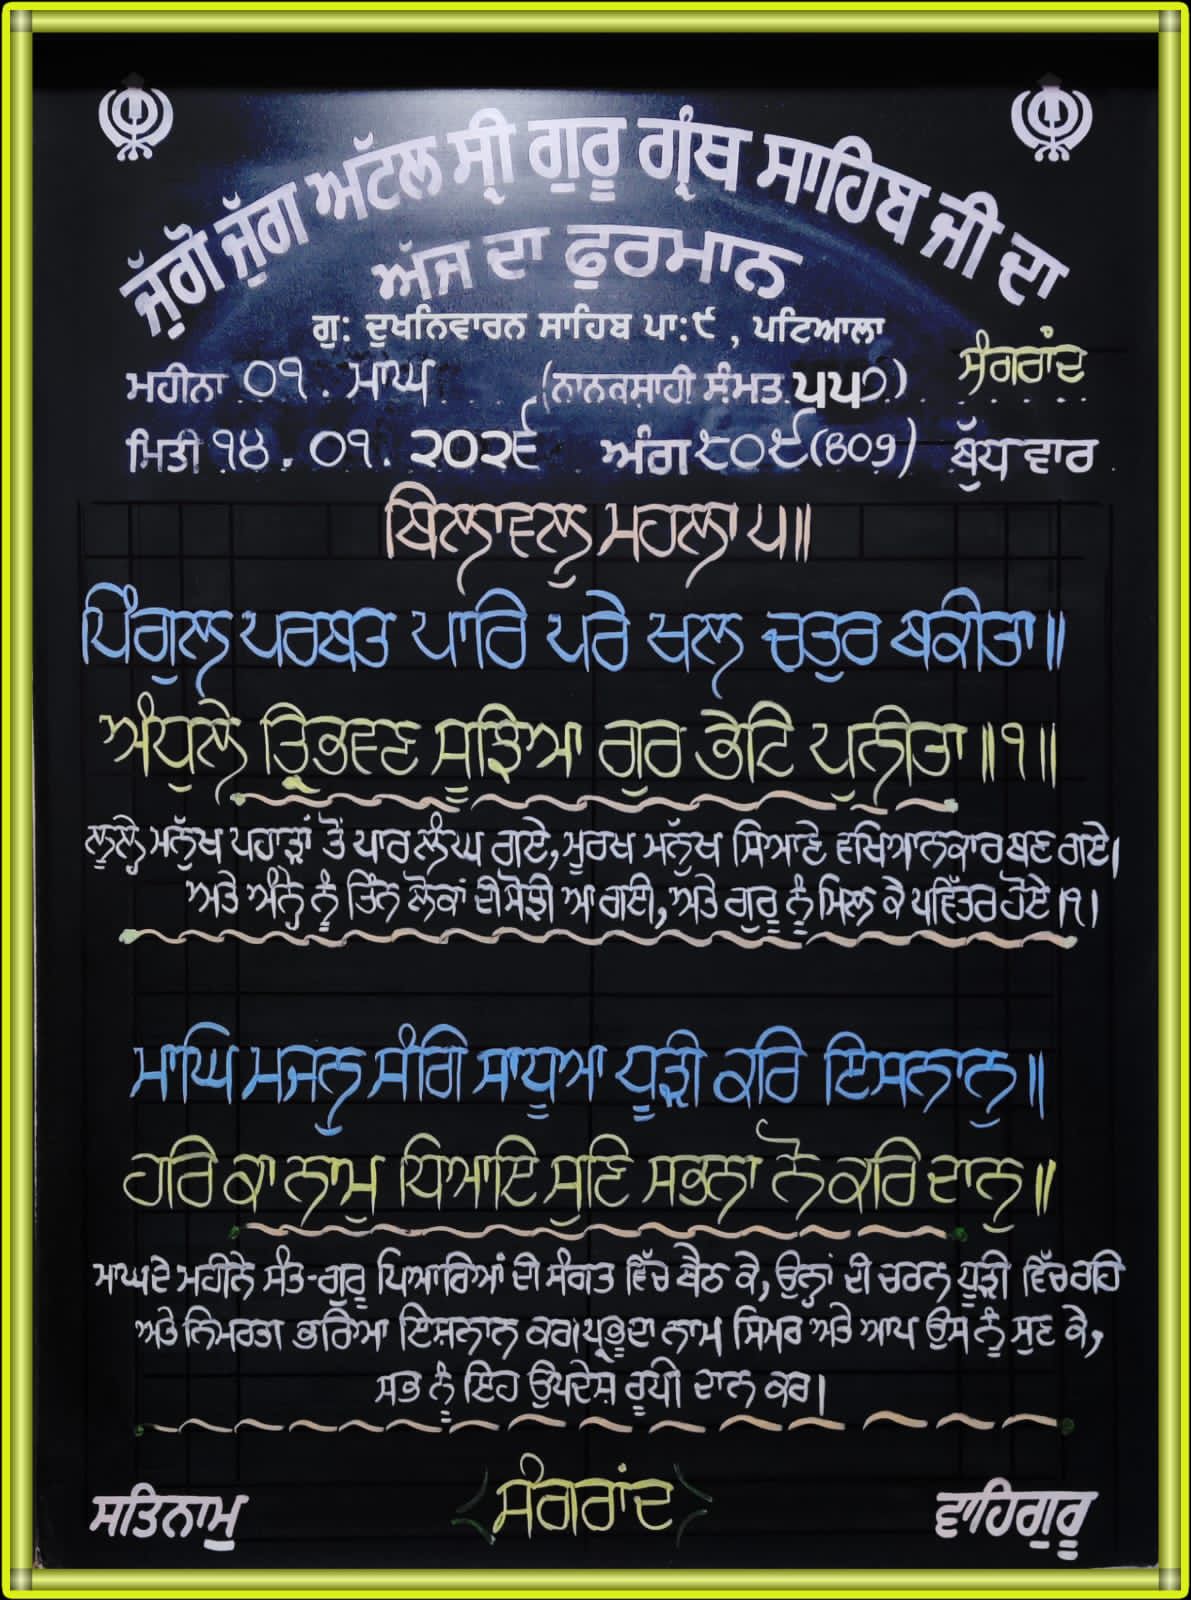 ਜੁੱਗੋ ਜੁੱਗ ਅੱਟਲ ਸ੍ਰੀ ਗੁਰੂ ਗ੍ਰੰਥ ਸਾਹਿਬ ਜੀ ਦਾ
ਅੱਜ ਦਾ ਫੁਰਮਾਨ
ਗੁ: ਦੁਖਨਿਵਾਰਨ ਸਾਹਿਬ ਪਾ:੯ , ਪਟਿਆਲਾ
ਸੰਗਰਾਂਦ
ਮਹੀਨਾ ੦੧. ਮਾਘ (ਨਾਨਕਸਾਹੀ ਸੰਮਤ ੫੫੭)
ਮਿਤੀ ੧੪. ੦੧. ੨੦੨੬ ਅੰਗ ੮੦੯(809) ਬੁੱਧ ਵਾਰ
ਬਿਲਾਵਲੁ ਮਹਲਾ ੫॥
ਪਿੰਗੁਲ ਪਰਬਤ ਪਾਰਿ ਪਰੇ ਖਲ ਚਤੁਰ ਬਕੀਤਾ॥
ਅੰਧੁਲੇ ਤ੍ਰਿਭਵਣ ਸੂਝਿਆ ਗੁਰ ਭੇਟਿ ਪੁਨੀਤਾ॥੧॥
ਲੂਲ੍ਹੇ ਮਨੁੱਖ ਪਹਾੜਾਂ ਤੋਂ ਪਾਰ ਲੰਘ ਗਏ, ਮੂਰਖ ਮਨੁੱਖ ਸਿਆਣੇ ਵਖਿਆਨਕਾਰ ਬਣ ਗਏ।
ਅਤੇ ਅੰਨ੍ਹੇ ਨੂੰ ਤਿੰਨ ਲੋਕਾਂ ਦੀ ਸੋਝੀ ਆ ਗਈ, ਅਤੇ ਗੁਰੂ ਨੂੰ ਮਿਲ ਕੇ ਪਵਿੱਤਰ ਹੋਏ।੧।
ਮਾਘਿ ਮਜਨੁ ਸੰਗਿ ਸਾਧੂਆ ਧੂੜੀ ਕਰਿ ਇਸਨਾਨੁ॥
ਹਰਿ ਕਾ ਨਾਮੁ ਧਿਆਇ ਸੁਣਿ ਸਭਨਾ ਨੋ ਕਰਿ ਦਾਨੁ॥
ਮਾਘ ਦੇ ਮਹੀਨੇ ਸੰਤ-ਗੁਰੂ ਪਿਆਰਿਆਂ ਦੀ ਸੰਗਤ ਵਿੱਚ ਬੈਠ ਕੇ, ਉਨ੍ਹਾਂ ਦੀ ਚਰਨ ਧੂੜੀ ਵਿੱਚ ਰਹਿ
ਅਤੇ ਨਿਮਰਤਾ ਭਰਿਆ ਇਸ਼ਨਾਨ ਕਰ। ਪ੍ਰਭੂ ਦਾ ਨਾਮ ਸਿਮਰ ਅਤੇ ਆਪ ਉਸ ਨੂੰ ਸੁਣ ਕੇ,
ਸਭ ਨੂੰ ਇਹ ਉਪਦੇਸ਼ ਰੂਪੀ ਦਾਨ ਕਰ।
ਸਤਿਨਾਮੁ ਸੰਗਰਾਂਦ ਵਾਹਿਗੁਰੂ